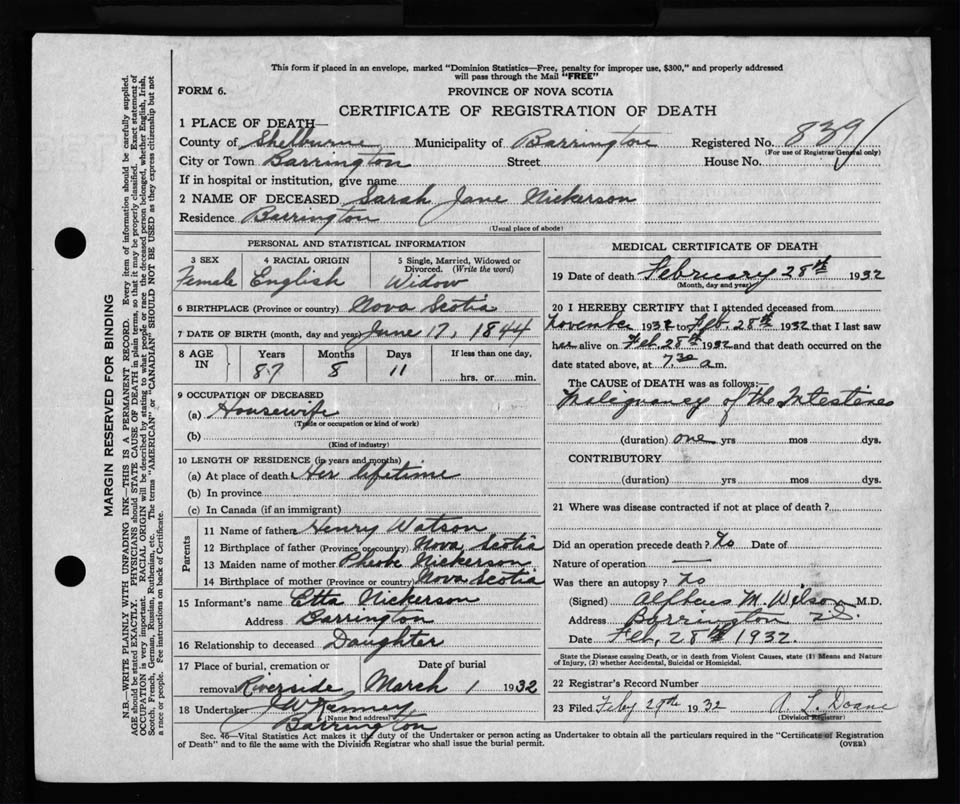 This form if placed in an envelope, marked "Dominion Statistics—Free, penalty for improper use, $300," and properly addressed
will pass through the Mail "FREE"
FORM 6.
PROVINCE OF NOVA SCOTIA
CERTIFICATE OF REGISTRATION OF DEATH
1 PLACE OF DEATH—
County of Shelburne Municipality of Barrington Registered No. 839
(For use of Registrar General only)
City or Town Barrington Street House No.
If in hospital or institution, give name
2 NAME OF DECEASED Sarah Jane Nickerson
Residence Barrington
(Usual place of abode)
PERSONAL AND STATISTICAL INFORMATION
3 SEX 4 RACIAL ORIGIN 5 Single, Married, Widowed or
Divorced. (Write the word)
Female English Widow
6 BIRTHPLACE (Province or country) Nova Scotia
7 DATE OF BIRTH (month, day and year) June 17, 1844
8 AGE IN Years Months Days If less than one day,
87 8 11 hrs. or min.
9 OCCUPATION OF DECEASED
(a) Housewife
(Trade or occupation or kind of work)
(b)
(Kind of industry)
10 LENGTH OF RESIDENCE (in years and months)
(a) At place of death Her lifetime
(b) In province
(c) In Canada (if an immigrant)
Parents
11 Name of father Henry Watson
12 Birthplace of father (Province or country) Nova Scotia
13 Maiden name of mother Pheobe Nickerson
14 Birthplace of mother (Province or country) Nova Scotia
15 Informant's name Etta Nickerson
Address Barrington
16 Relationship to deceased Daughter
17 Place of burial, cremation or Date of burial
removal Riverside March 1 1932
18 Undertaker J W Kenney
(Name and address)
Barrington
MEDICAL CERTIFICATE OF DEATH
19 Date of death February 28th 1932
(Month, day and year)
20 I HEREBY CERTIFY that I attended deceased from
November 193 to Feb. 28th 1932 that I last saw
her alive on Feb. 28th 1932 and that death occurred on the
date stated above, at 7.30 a m.
The CAUSE OF DEATH was as follows:—
Malignancy of the Intestines
(duration) one yrs mos dys.
CONTRIBUTORY
(duration) yrs mos dys.
21 Where was disease contracted if not at place of death?
Did an operation precede death? No Date of
Nature of operation —
Was there an autopsy? No
(Signed) Alpheus M. Wilson M.D.
Address Barrington
Date Feb. 28th 1932.
State the Disease causing Death, or in death from Violent Causes, state (1) Means and Nature
of Injury, (2) whether Accidental, Suicidal or Homicidal.
22 Registrar's Record Number
23 Filed Feby 29th 1932 A. L. Doane
(Division Registrar)
Sec. 46—Vital Statistics Act makes it the duty of the Undertaker or person acting as Undertaker to obtain all the particulars required in the "Certificate of Registration
of Death" and to file the same with the Division Registrar who shall issue the burial permit.
(OVER)
MARGIN RESERVED FOR BINDING
N.B.—WRITE PLAINLY WITH UNFADING INK—THIS IS A PERMANENT RECORD. Every item of information should be carefully supplied.
AGE should be stated EXACTLY. PHYSICIANS should STATE CAUSE OF DEATH in plain terms, so that it may be properly classified. Exact statement of
OCCUPATION is very important. RACIAL ORIGIN will be described by stating to what people or race the deceased person belonged, whether English, Irish,
Scotch, French, German, Russian, Ruthenian, etc. The terms "AMERICAN" or "CANADIAN" SHOULD NOT BE USED as they express citizenship but not
a race or people. See instructions on back of Certificate.